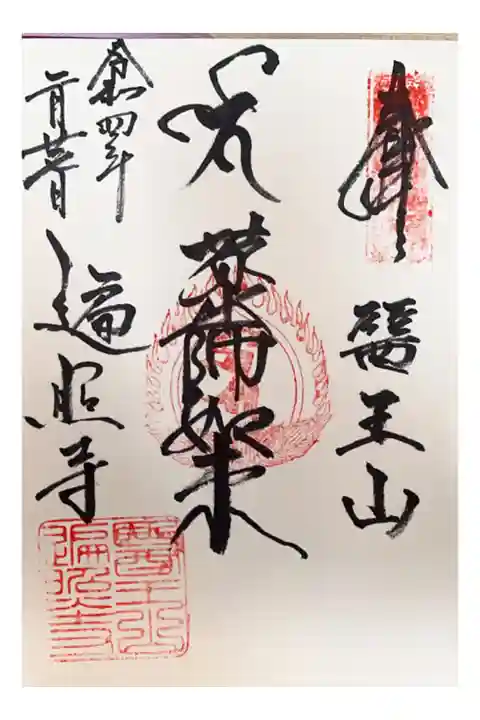 奉拝
醫王山
薬師如来
令和四年
遍照寺
醫王山
遍照寺